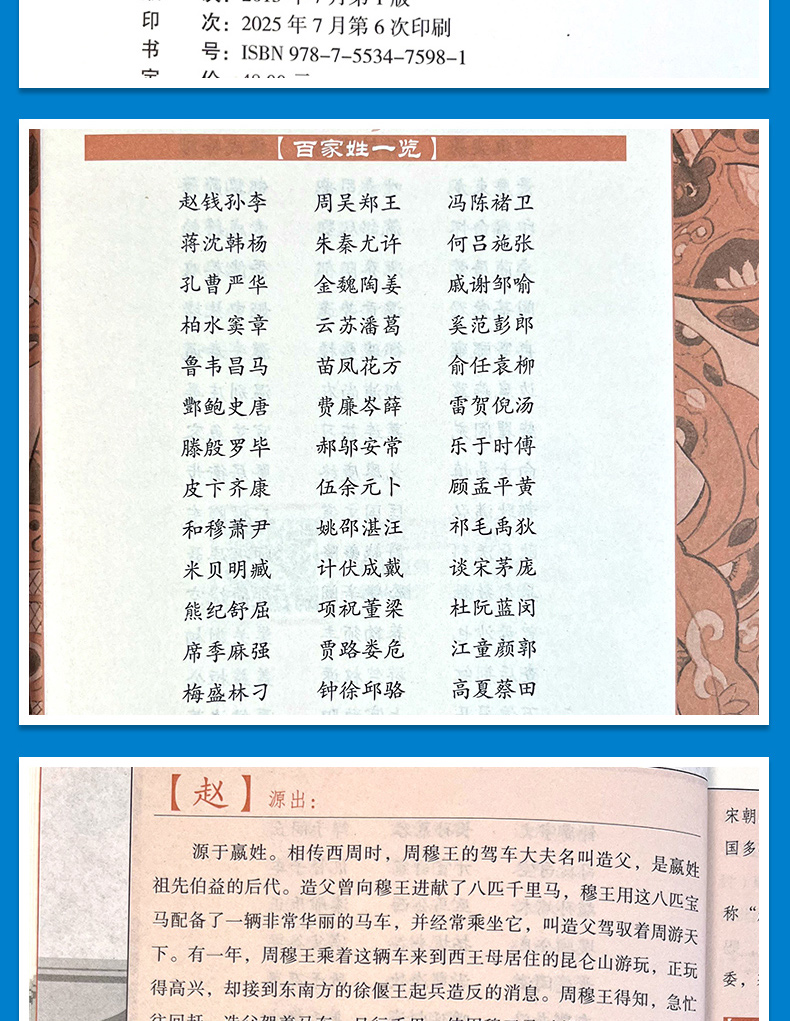 次：2015年7月第1版
印 次：2025年7月第6次印刷
书 号：ISBN 978-7-5534-7598-1
【百家姓一览】
赵钱孙李 周吴郑王 冯陈褚卫
蒋沈韩杨 朱秦尤许 何吕施张
孔曹严华 金魏陶姜 戚谢邹喻
柏水窦章 云苏潘葛 奚范彭郎
鲁韦昌马 苗凤花方 俞任袁柳
酆鲍史唐 费廉岑薛 雷贺倪汤
滕殷罗毕 郝邬安常 乐于时傅
皮卞齐康 伍余元卜 顾孟平黄
和穆萧尹 姚邵湛汪 祁毛禹狄
米贝明臧 计伏成戴 谈宋茅庞
熊纪舒屈 项祝董梁 杜阮蓝闵
席季麻强 贾路娄危 江童颜郭
梅盛林刁 钟徐邱骆 高夏蔡田
【赵】源出：
源于嬴姓。相传西周时，周穆王的驾车大夫名叫造父，是嬴姓
祖先伯益的后代。造父曾向穆王进献了八匹千里马，穆王用这八匹宝
马配备了一辆非常华丽的马车，并经常乘坐它，叫造父驾驭着周游天
下。有一年，周穆王乘着这辆车来到西王母居住的昆仑山游玩，正玩
得高兴，却接到东南方的徐偃王起兵造反的消息。周穆王得知，急忙
宋朝
国多
称“
委，